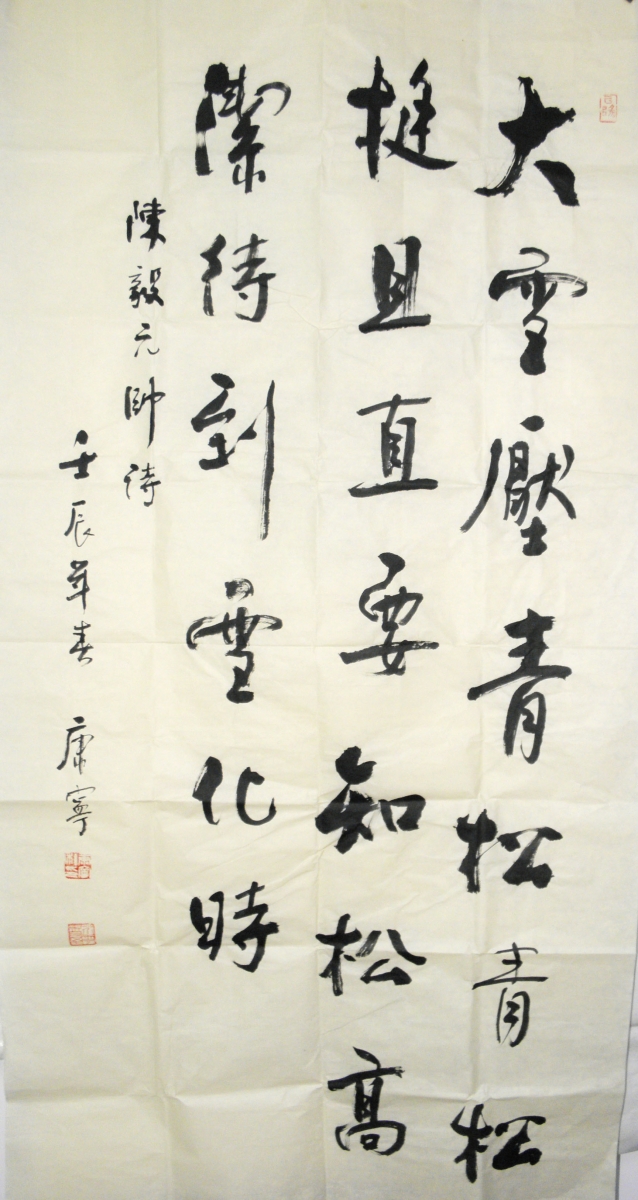 大雪壓青松青松
挺且直要知松高
潔待到雪化時
陳毅元帥詩
壬辰年春 康寧